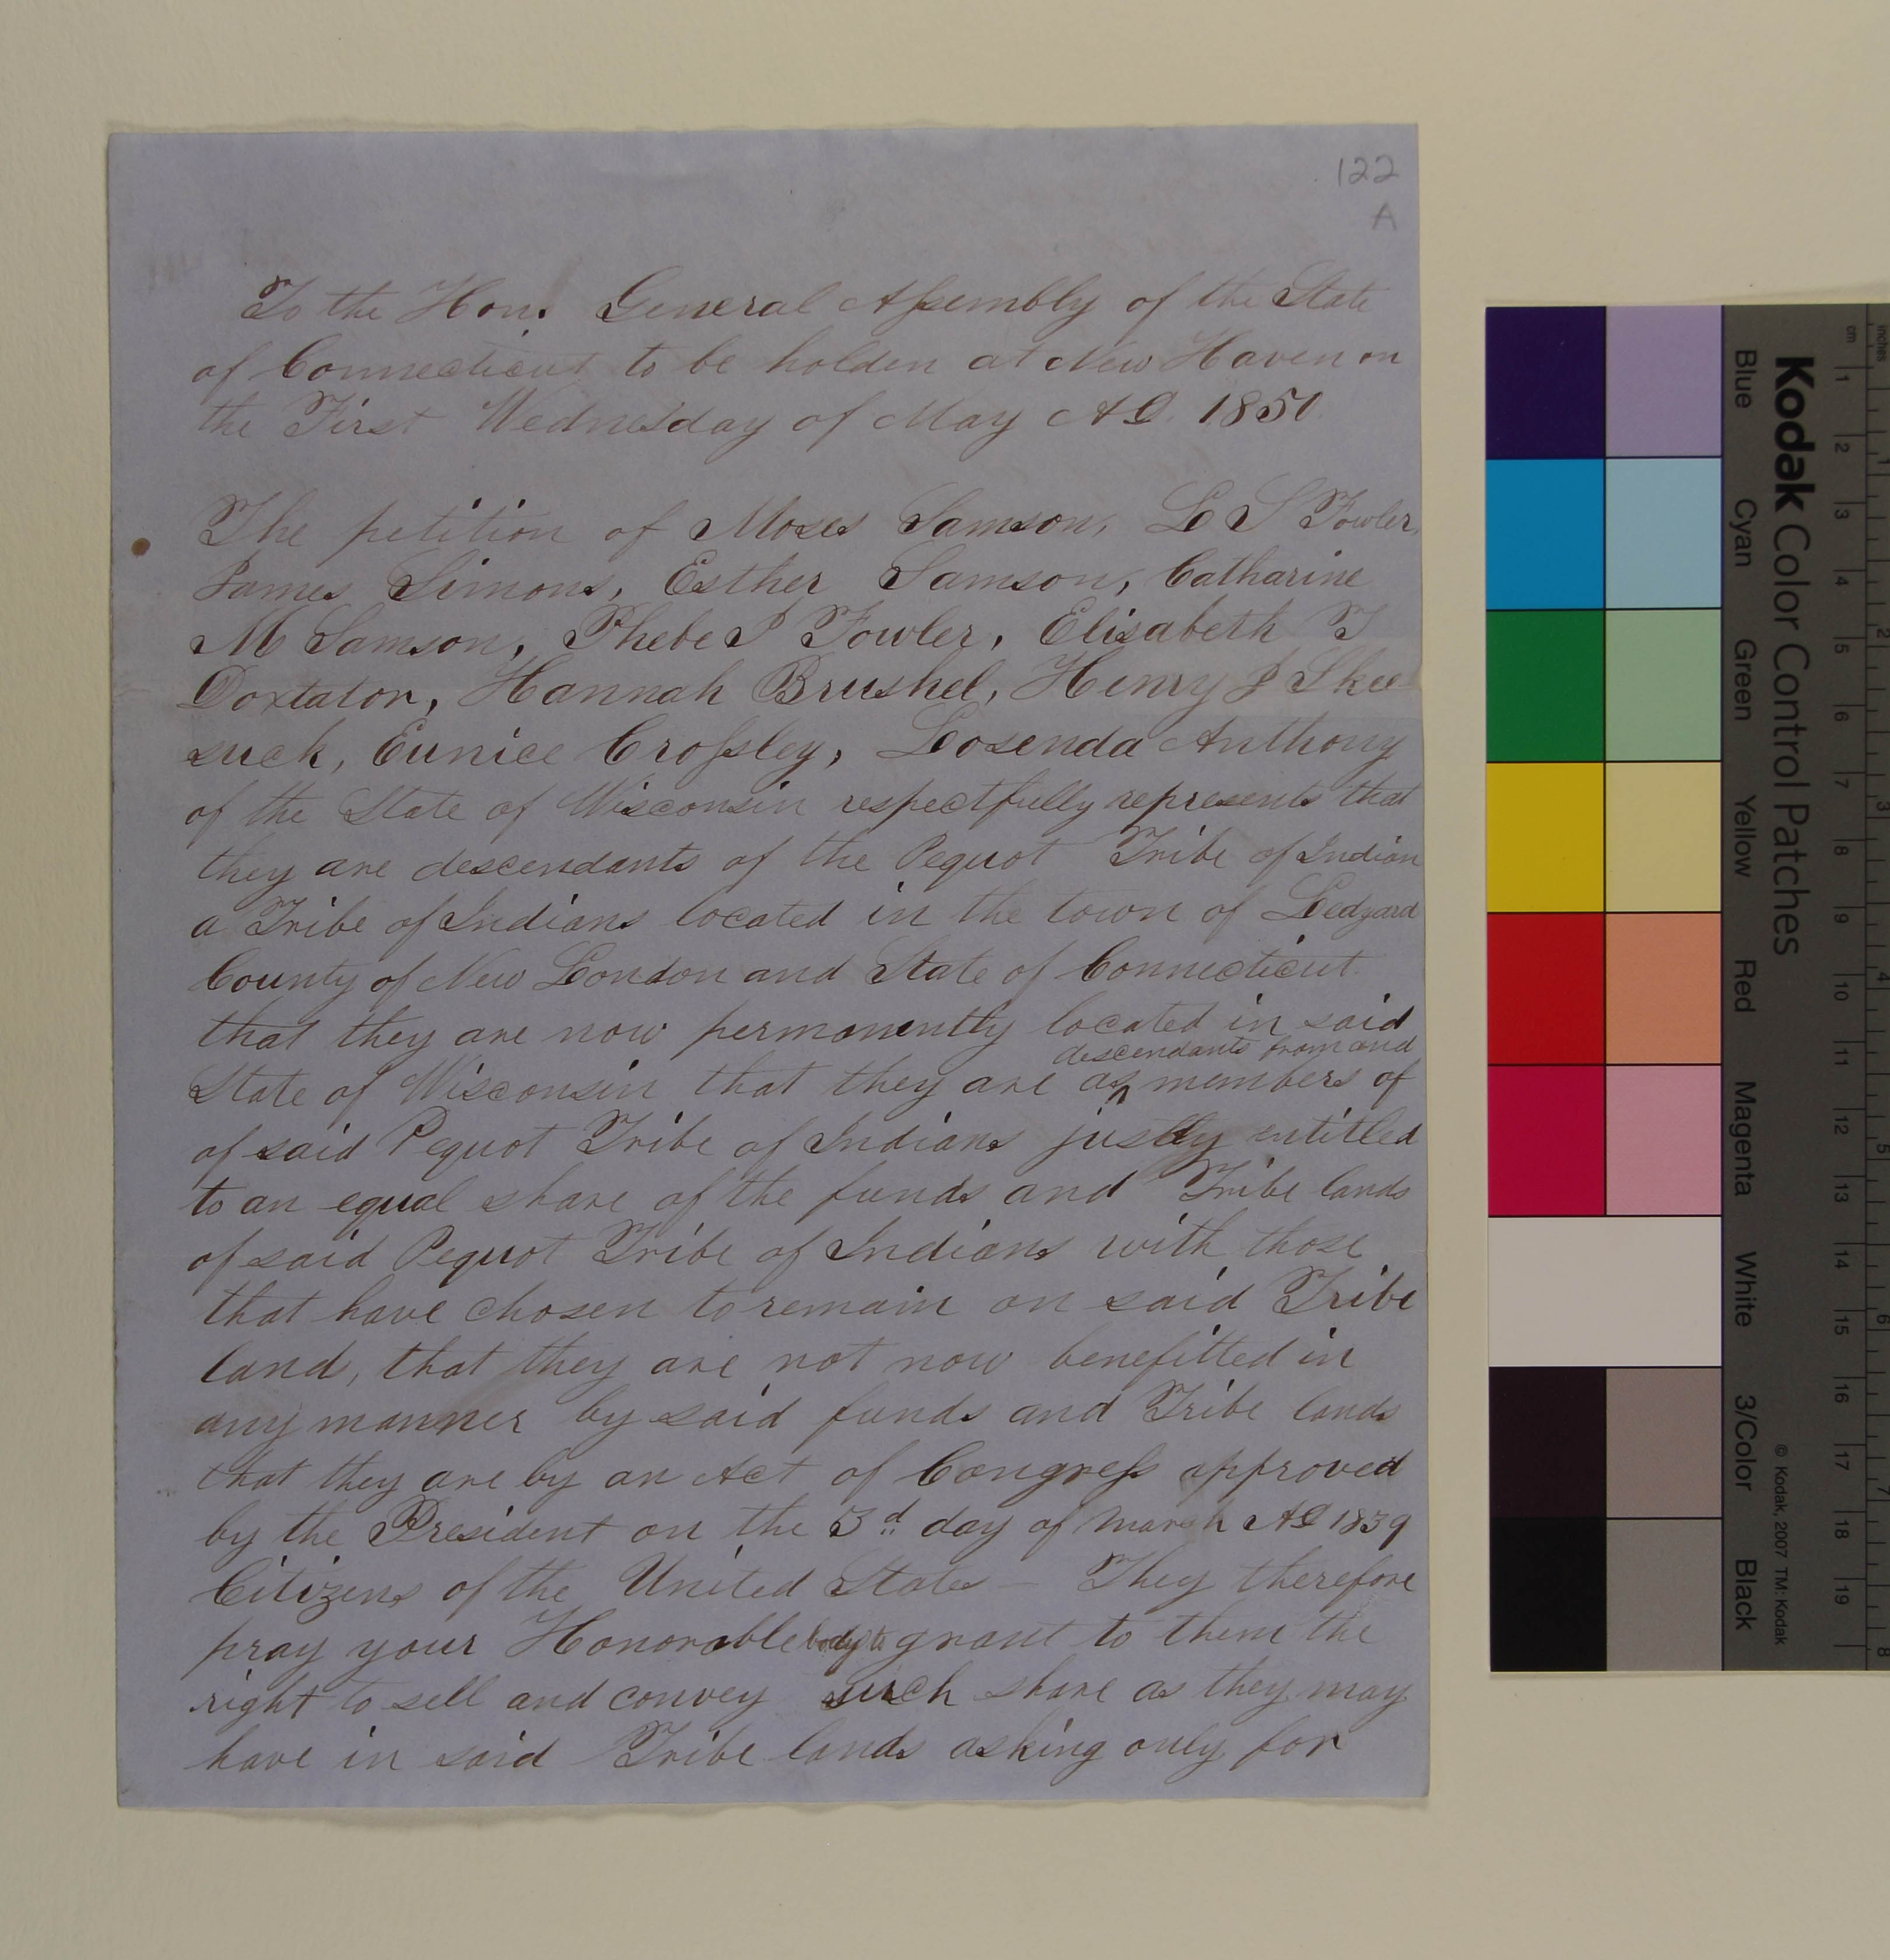 122
A
To the Hon. General Assembly of the State
of Connecticut to be holden at New Haven on
the First Wednesday of May AD. 1850
The petition of Moses Samson, L S Fowler,
James Simons, Esther Samson, Catharine
M Samson, Phebe P Fowler, Elisabeth T
Doxtator, Hannah Brushel, Henry J Skee
suck, Eunice Crossley, Losenda Anthony
of the State of Wisconsin respectfully represents that
they are descendants of the Pequot Tribe of Indian
a Tribe of Indians located in the town of Ledyard
County of New London and State of Connecticut
that they are now permanently located in said
descendants from and
State of Wisconsin that they are as members of
of said Pequot Tribe of Indians justly entitled
to an equal share of the funds and Tribe lands
of said Pequot Tribe of Indians with those
that have chosen to remain on said Tribe
land, that they are not now benefitted in
any manner by said funds and Tribe lands
that they are by an Act of Congress approved
by the President on the 3d day of March AD 1839
Citizens of the United States — They therefore
pray your Honorable body to grant to them the
right to sell and convey such share as they may
have in said Tribe lands asking only for
Kodak Color Control Patches
Blue Cyan Green Yellow Red Magenta White 3/Color Black
© Kodak, 2007 TM: Kodak
cm 1 2 3 4 5 6 7 8 9 10 11 12 13 14 15 16 17 18 19
inches 1 2 3 4 5 6 7 8